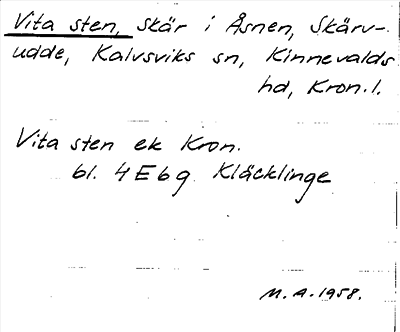 Vita sten, skär i Åsnen, Skärv-
udde, Kalvsviks sn, Kinnevalds
hd, Kron.l.
Vita sten ek Kron.
bl. 4 E b g Kläcklinge
M. A. 1958.